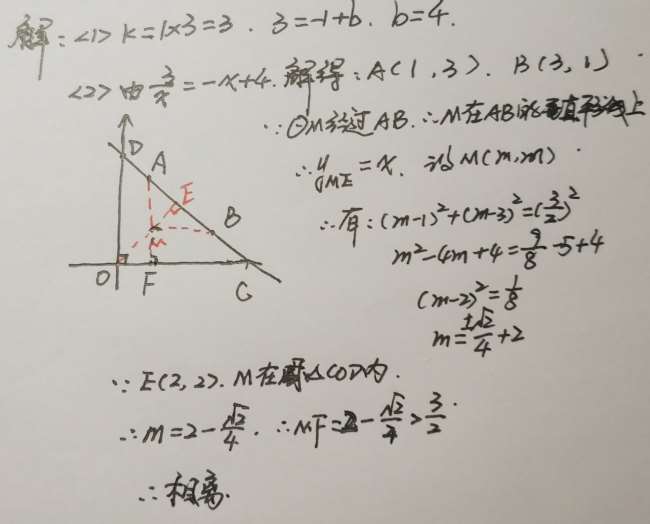 解:<1> k=1×3=3. 3=-1+b. b=4.
<2> 由3/x=-x+4. 解得:A(1,3). B(3,1)
∵⊙M经过AB.∴M在AB的垂直平分线上
∴y_ME=x. 设M(m,m)
∴有:(m-1)²+(m-3)²=(3/2)²
m²-4m+4=9/8-5+4
(m-2)²=1/8
m=±√2/4+2
D
A
E
B
M
O
F
C
∵E(2,2). M在△COD内.
∴m=2-√2/4. ∴MF=2-√2/4>3/2.
∴相离.